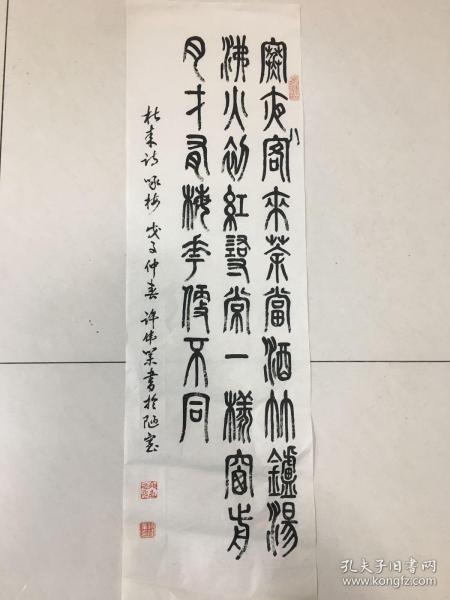 寒夜客來茶當酒竹鑪湯
沸火初紅尋常一樣窗前
月才有梅花便不同
杜耒诗 咏梅 戊子仲春 许伟書於陋室
孔夫子旧书网
www.kongfz.com